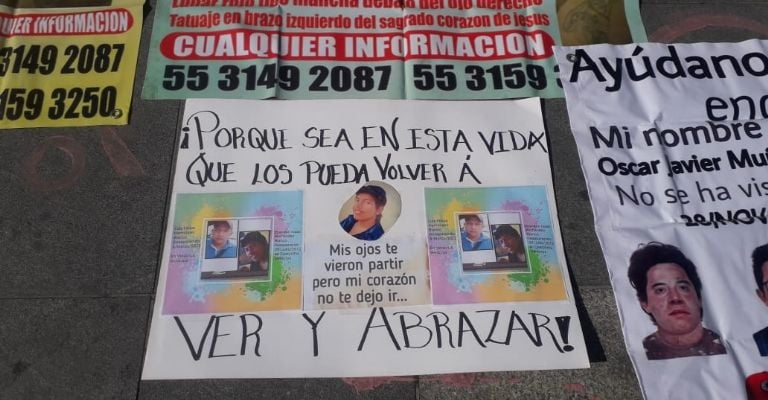 debajo del ojo derecho
Tatuaje en brazo izquierdo del sagrado corazon de jesus
CUALQUIER INFORMACION
55 3149 2087 55 3159 3
UIER INFORMACION
3149 2087
159 3250
¡PORQUE SEA EN ESTA VIDA
QUE LOS PUEDA VOLVER Á
Mis ojos te
vieron partir
pero mi corazón
no te dejo ir...
VER Y ABRAZAR!
Ayúdano
enc
Mi nombre
Oscar Javier Mu
No se ha vis
28/NOV